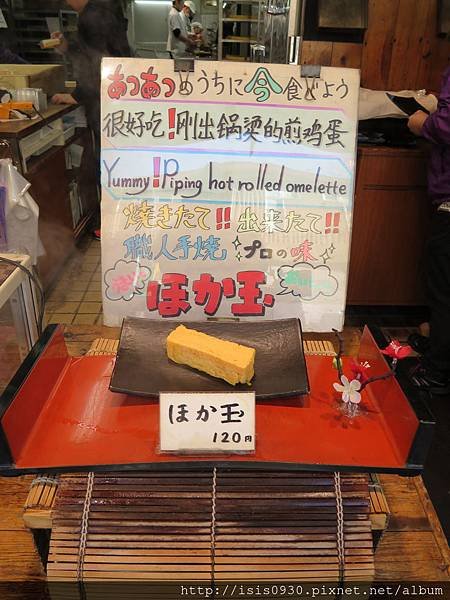 あつあつめうちに今食どよう
很好吃!刚出锅烫的煎鸡蛋
Yummy!Piping hot rolled omelette
焼きたて!!出来たて!!
職人手焼 プロの味
ほか玉
ほか玉
120円
http://isis0930.pixnet.net/album